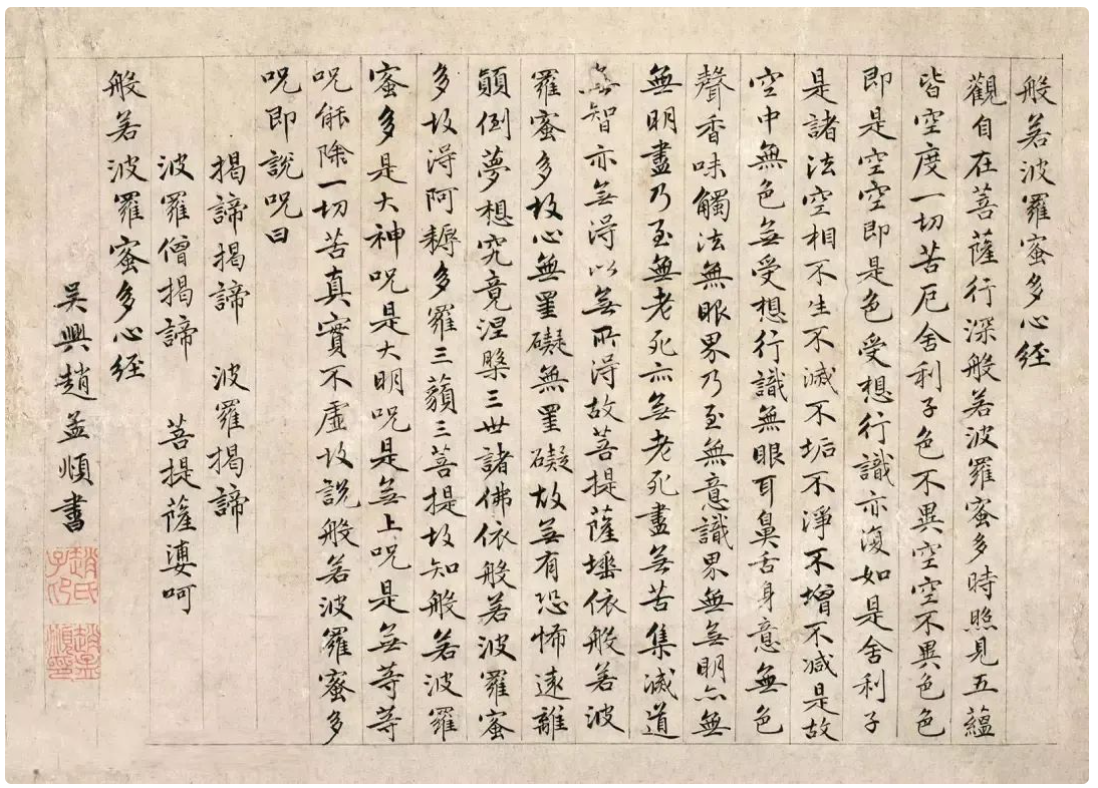 般若波羅蜜多心経
觀自在菩薩行深般若波羅蜜多時照見五蘊
皆空度一切苦厄舍利子色不異空空不異色色
即是空空即是色受想行識亦復如是舍利子
是諸法空相不生不滅不垢不淨不增不減是故
空中無色無受想行識無眼耳鼻舌身意無色
聲香味觸法無眼界乃至無意識界無無明亦無
無明盡乃至無老死亦無老死盡無苦集滅道
無智亦無得以無所得故菩提薩埵依般若波
羅蜜多故心無罣礙無罣礙故無有恐怖遠離
顛倒夢想究竟涅槃三世諸佛依般若波羅蜜
多故得阿耨多羅三藐三菩提故知般若波羅
蜜多是大神呪是大明呪是無上呪是無等等
呪能除一切苦真實不虛故說般若波羅蜜多
呪即說呪曰
揭諦揭諦 波羅揭諦
波羅僧揭諦 菩提薩婆呵
般若波羅蜜多心経
吳興趙孟頫書
趙氏子昂
趙孟頫印